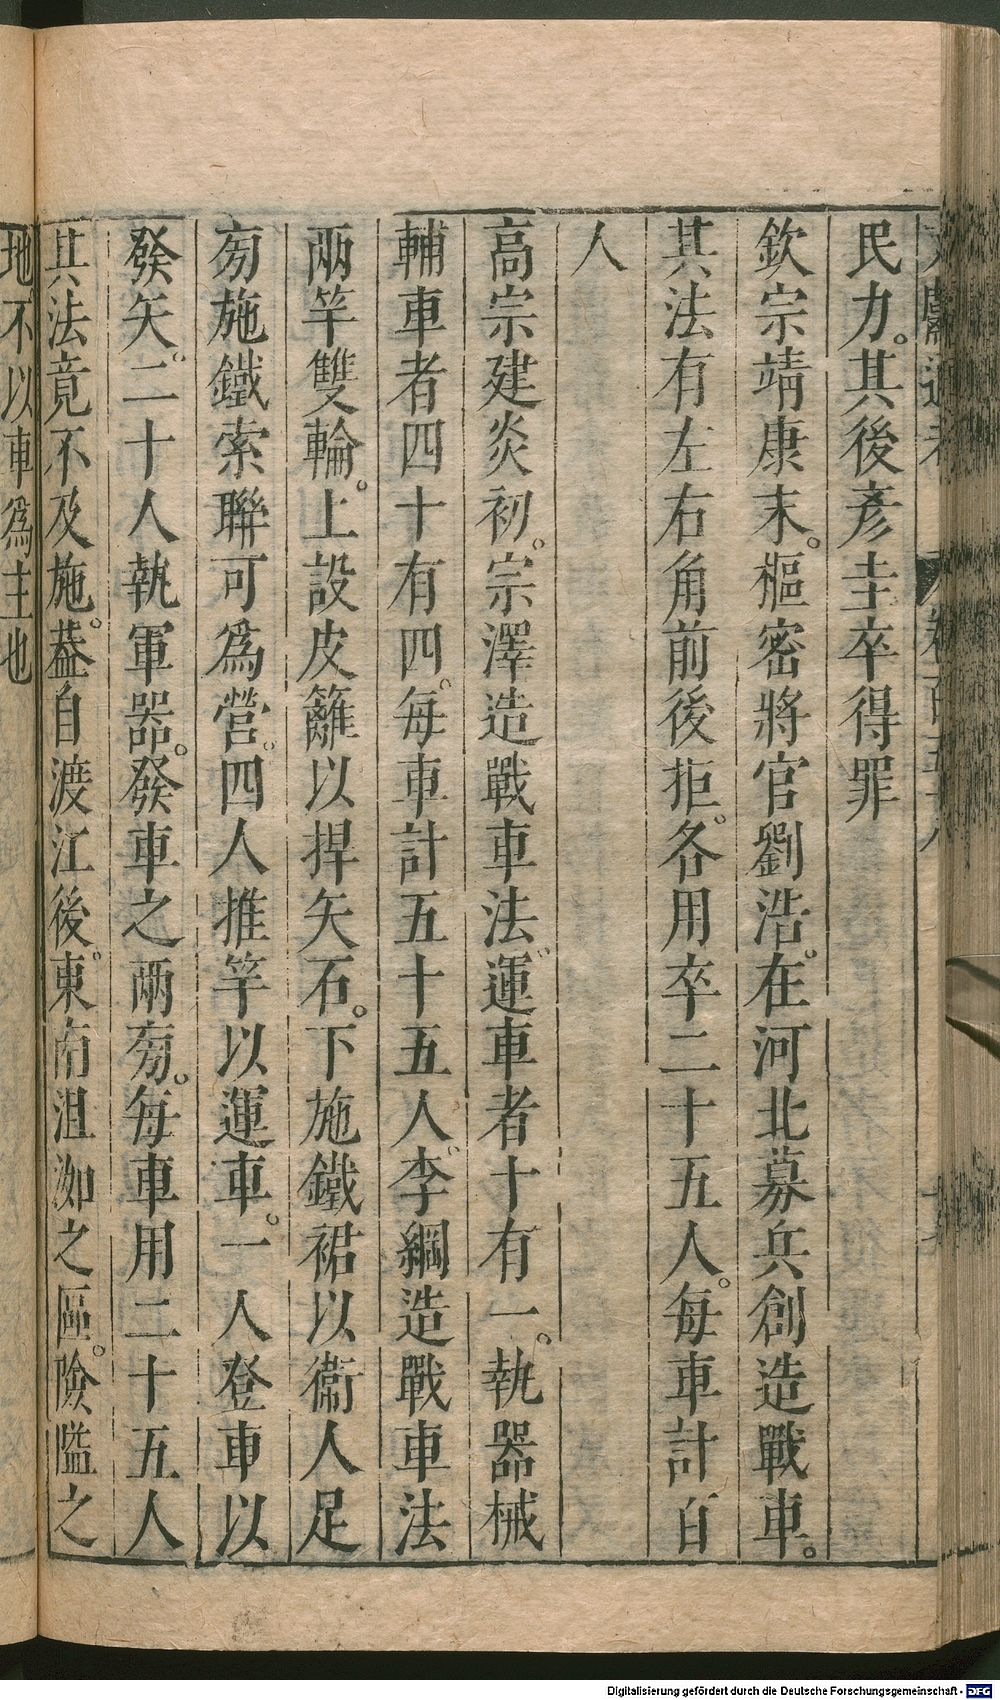 民力。其後彥圭卒得罪
欽宗靖康末。樞密將官劉浩。在河北募兵創造戰車。
其法有左右角前後拒。各用卒二十五人。每車計百
人
高宗建炎初。宗澤造戰車法。運車者十有一。執器械
輔車者四十有四。每車計五十五人。李綱造戰車法
兩竿雙輪。上設皮籬以捍矢石。下施鐵裙以衞人足
旁施鐵索聯可爲營。四人推竿以運車。一人登車以
發矢。二十人執軍器。發車之兩旁。每車用二十五人
其法竟不及施。葢自渡江後。東南沮洳之區。險隘之
地不以車爲主也
Digitalisierung gefördert durch die Deutsche Forschungsgemeinschaft - DFG